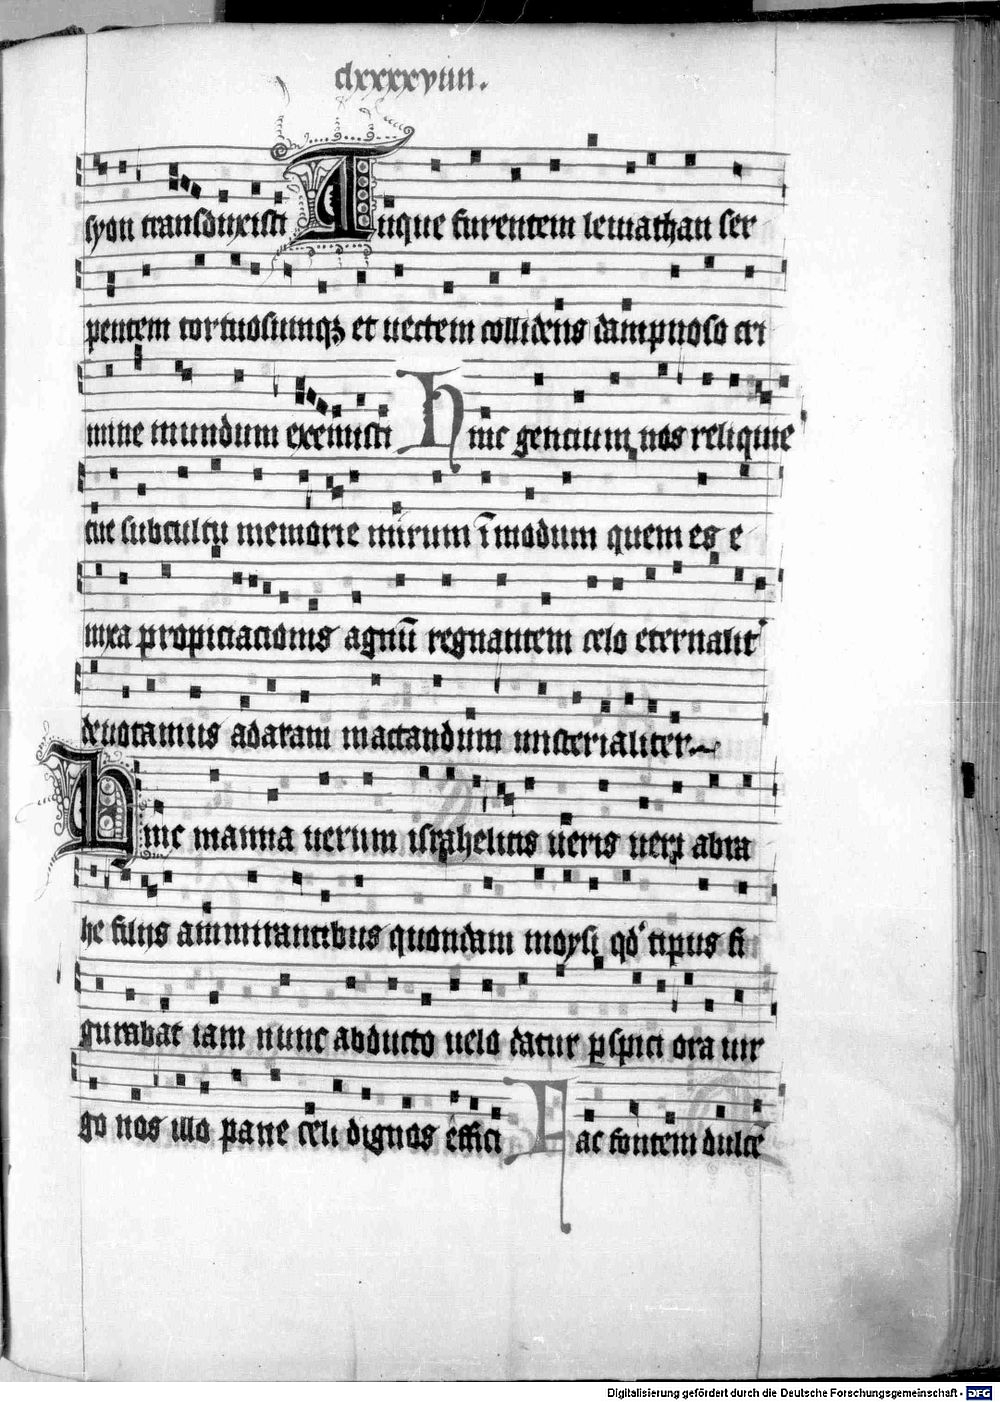 clxxxxviiii.
syon transduxisti Tuque furentem leuiathan ser
pentem tortuosumqz et uectem collidens dampnoso cri
mine mundum exemisti Hinc gencium nos reliquie
tue sub cultu memorie mirum ī modum quem es e
nixa propiciacionis agnū regnantem celo eternalit'
deuotamus ad aram mactandum misterialiter
Hinc manna uerum israhelitis ueris ueri abra
he filijs ammirantibus quondam moysi qd' tipus fi
gurabat iam nunc abducto uelo datur pspici ora uir
go nos illo pane celi dignos effici Fac fontem dulcē
Digitalisierung gefördert durch die Deutsche Forschungsgemeinschaft - DFG